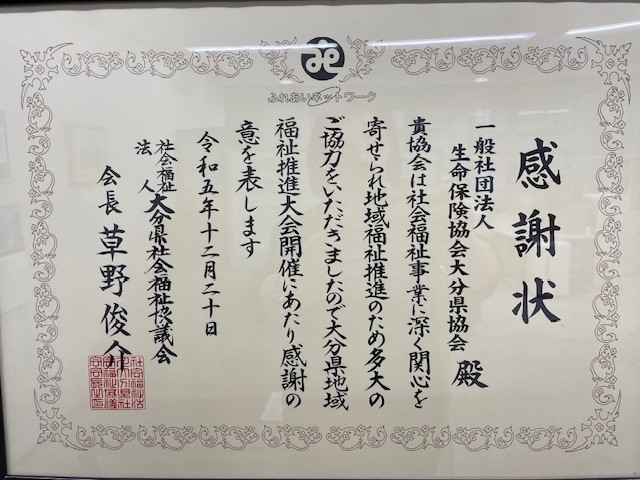 ふれあいネットワーク
感謝状
一般社団法人
生命保険協会大分県協会 殿
貴協会は社会福祉事業に深く関心を
寄せられ地域福祉推進のため多大の
ご協力をいただきましたので大分県地域
福祉推進大会開催にあたり感謝の
意を表します
令和五年十二月二十日
社会福祉法人 大分県社会福祉協議会
会長 草野俊介